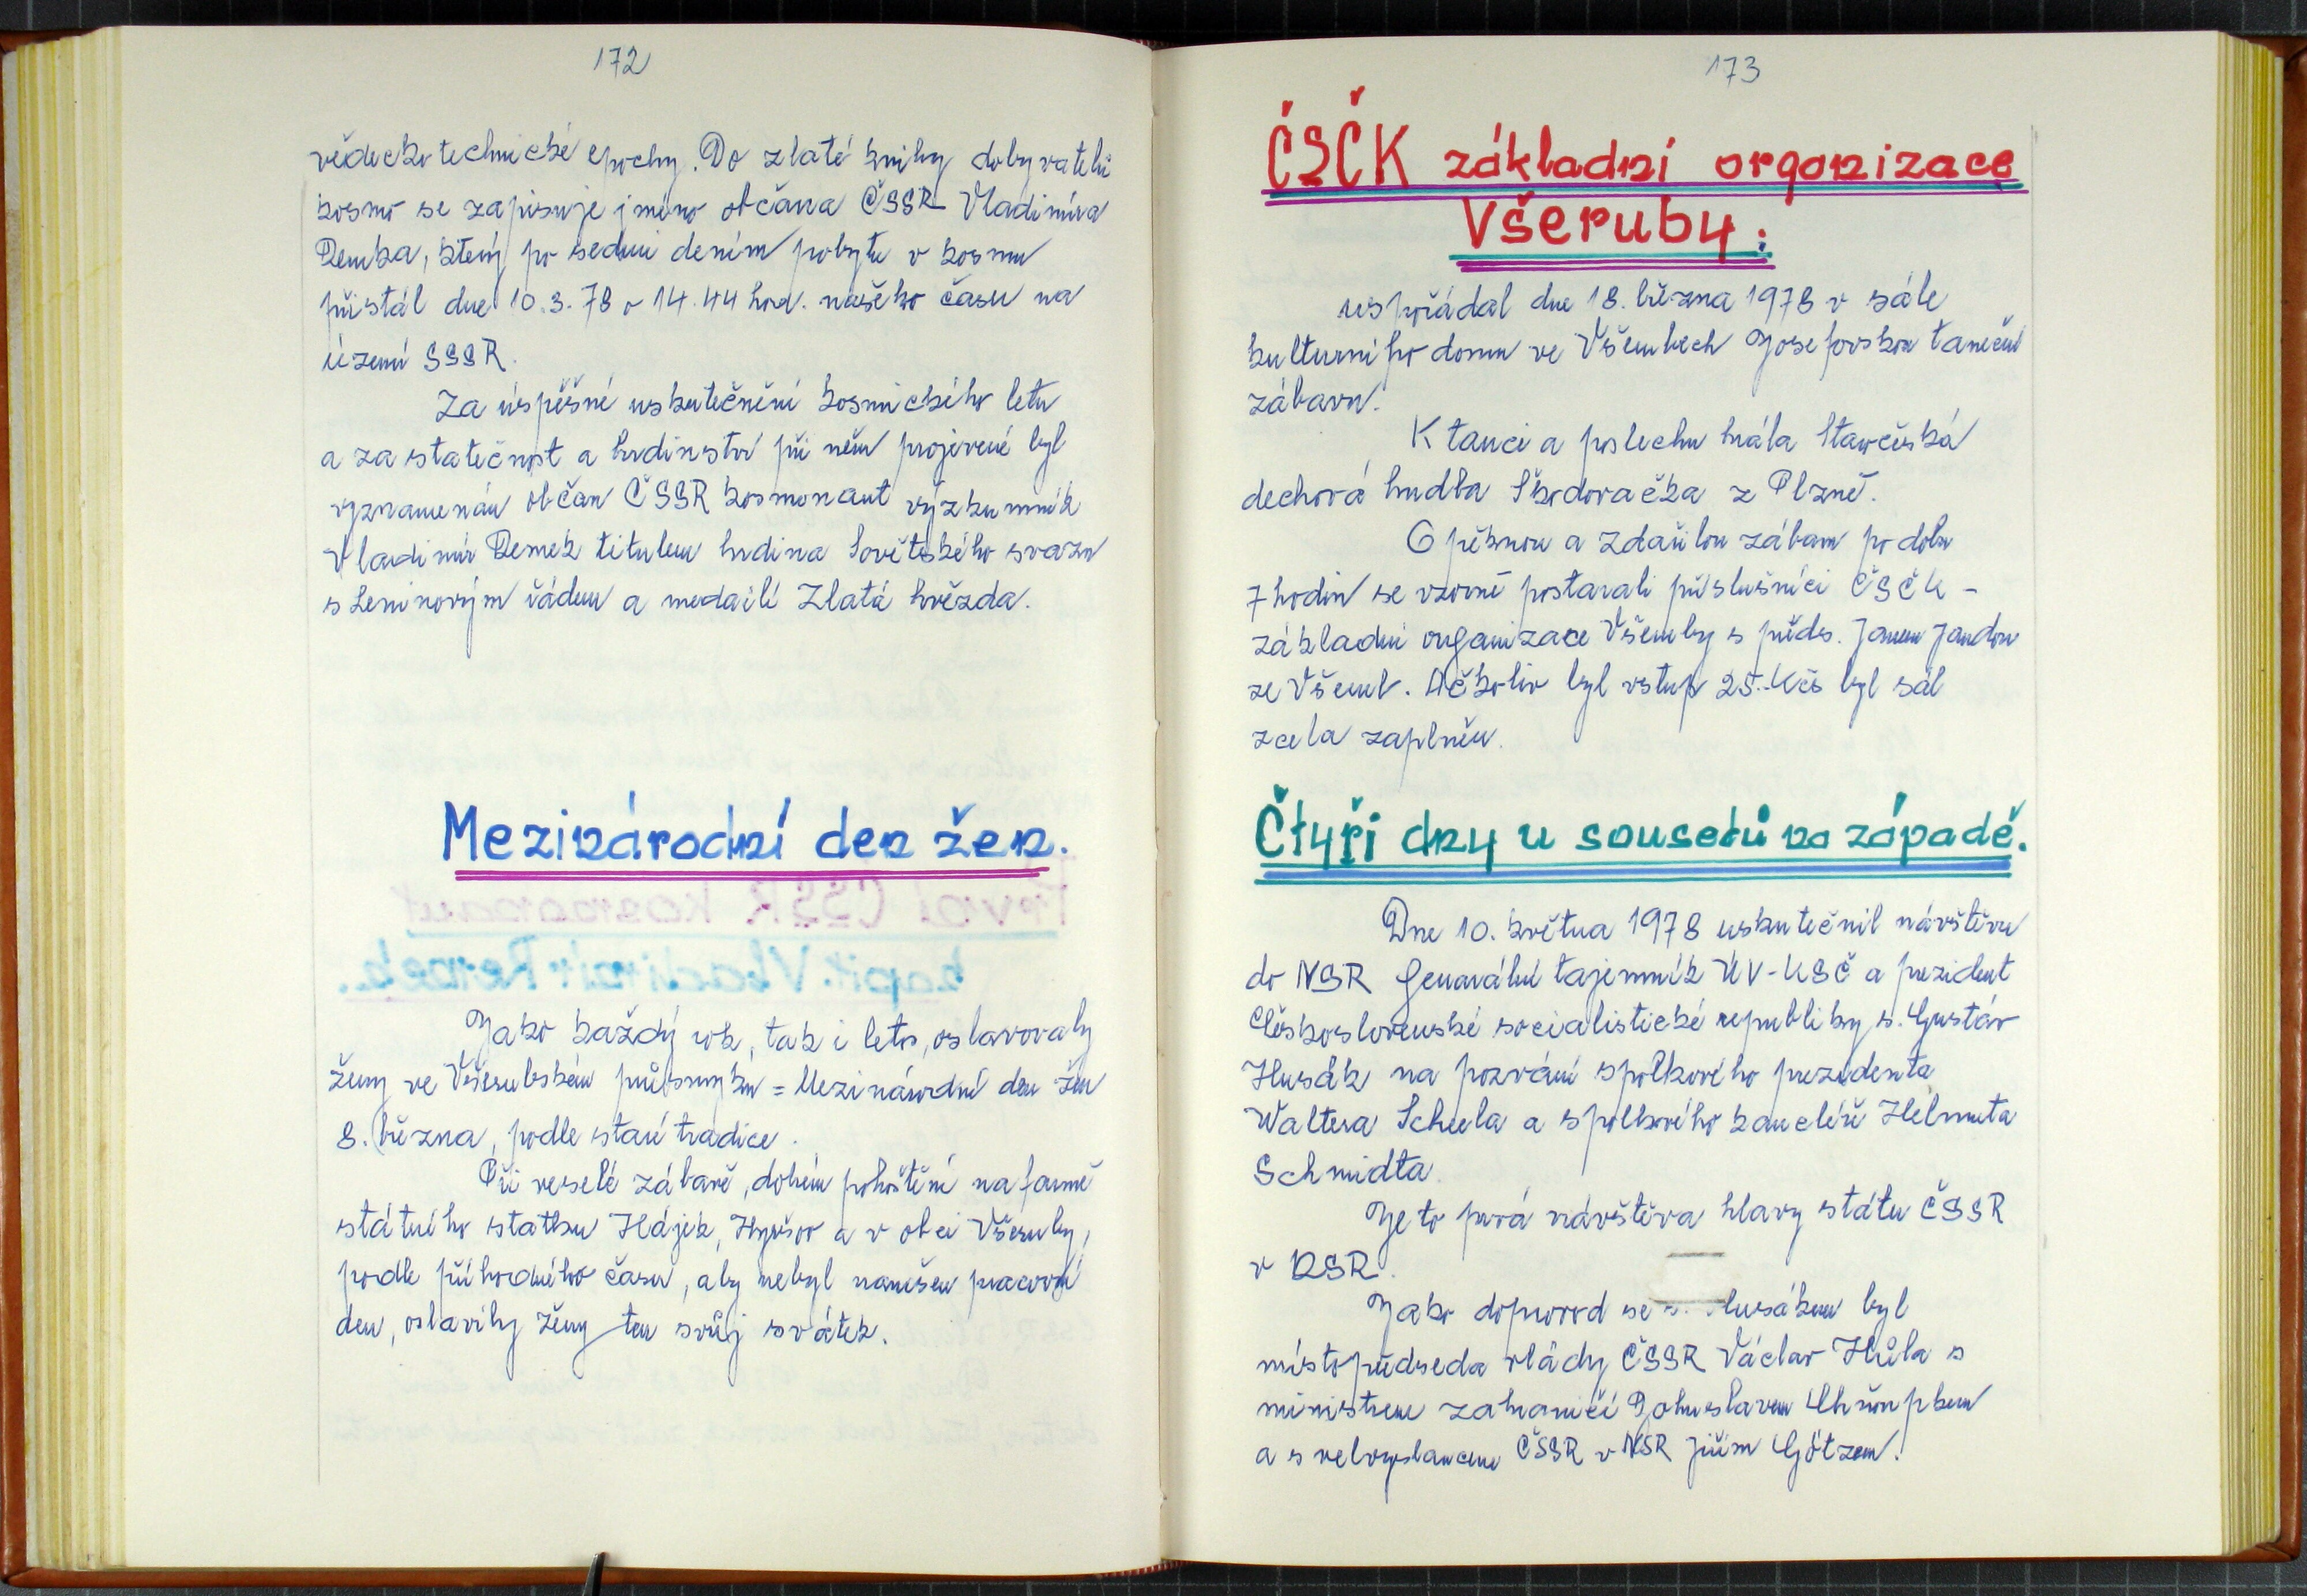 172
vědecko technické epochy. Do zlaté knihy dobyvatelů
kosmo se zapisuje jmeno občana ČSSR Vladimíra
Remka, který po sedmi dením pobytu v kosmu
přistál dne 10.3.78 v 14.44 hod. našeho času na
území SSSR.
Za úspěšné uskutečnění kosmického letu
a za statečnost a hrdinství při něm projevené byl
vyznamenán občan ČSSR kosmonaut výzkumník
Vladimír Remek titulem hrdina Sovětského svazu
s Leninovým řádem a medailí Zlatá hvězda.
Mezinárodní den žen.
Jako každý rok, tak i letos, oslavovaly
ženy ve Všerubském průsmyku = Mezinárodní den žen
8. března, podle staré tradice.
Při veselé zábavě, dobrém pohoštění na farmě
státního statku Hájek, Hyršov a v obci Všeruby,
podle příhodného času, aby nebyl narušen pracovní
den, oslavily ženy ten svůj svátek.
173
ČSČK základní organizace
Všeruby.
uspořádal dne 18. března 1978 v sále
kulturního domu ve Všerubech Josefovskou taneční
zábavu.
K tanci a poslechu hrála Staročeská
dechová hudba Škodovačka z Plzně.
O pěknou a zdařilou zábavu po dobu
7 hodin se vzorně postarali příslušníci ČSČK -
základní organizace Všeruby s předs. Janem Jandou
ze Všerub. Ačkoliv byl vstup 25.-Kčs byl sál
zcela zaplněn.
Čtyři dny u sousedů na západě.
Dne 10. května 1978 uskutečnil návštěvu
do NSR Generální tajemník ÚV-KSČ a prezident
Československé socialistické republiky s. Gustáv
Husák na pozvání spolkového prezidenta
Waltera Scheela a spolkového kancléře Helmuta
Schmidta.
Je to prvá návštěva hlavy státu ČSSR
v NSR.
Jako doprovod se s. Husákem byl
místopředseda vlády ČSSR Václav Hůla s
ministrem zahraničí Bohuslavem Chňoupkem
a s velvyslancem ČSSR v NSR Jiřím Götzem.